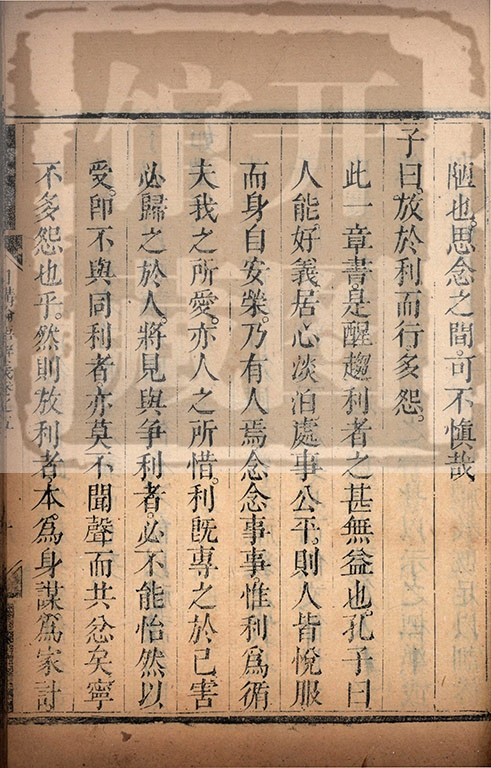 陋也。思念之間。可不慎哉
子曰。放於利而行多怨。
此一章書。是醒趨利者之甚無益也。孔子曰
人能好義。居心淡泊。處事公平。則人皆悅服
而身自安榮。乃有人焉。念念事事。惟利為循
夫我之所愛。亦人之所惜。利既專之於己。害
必歸之於人。將見與爭利者。必不能怡然以
受。即不與同利者。亦莫不聞聲而共忿矣。寧
不多怨也乎。然則放利者。本為身謀。為家計